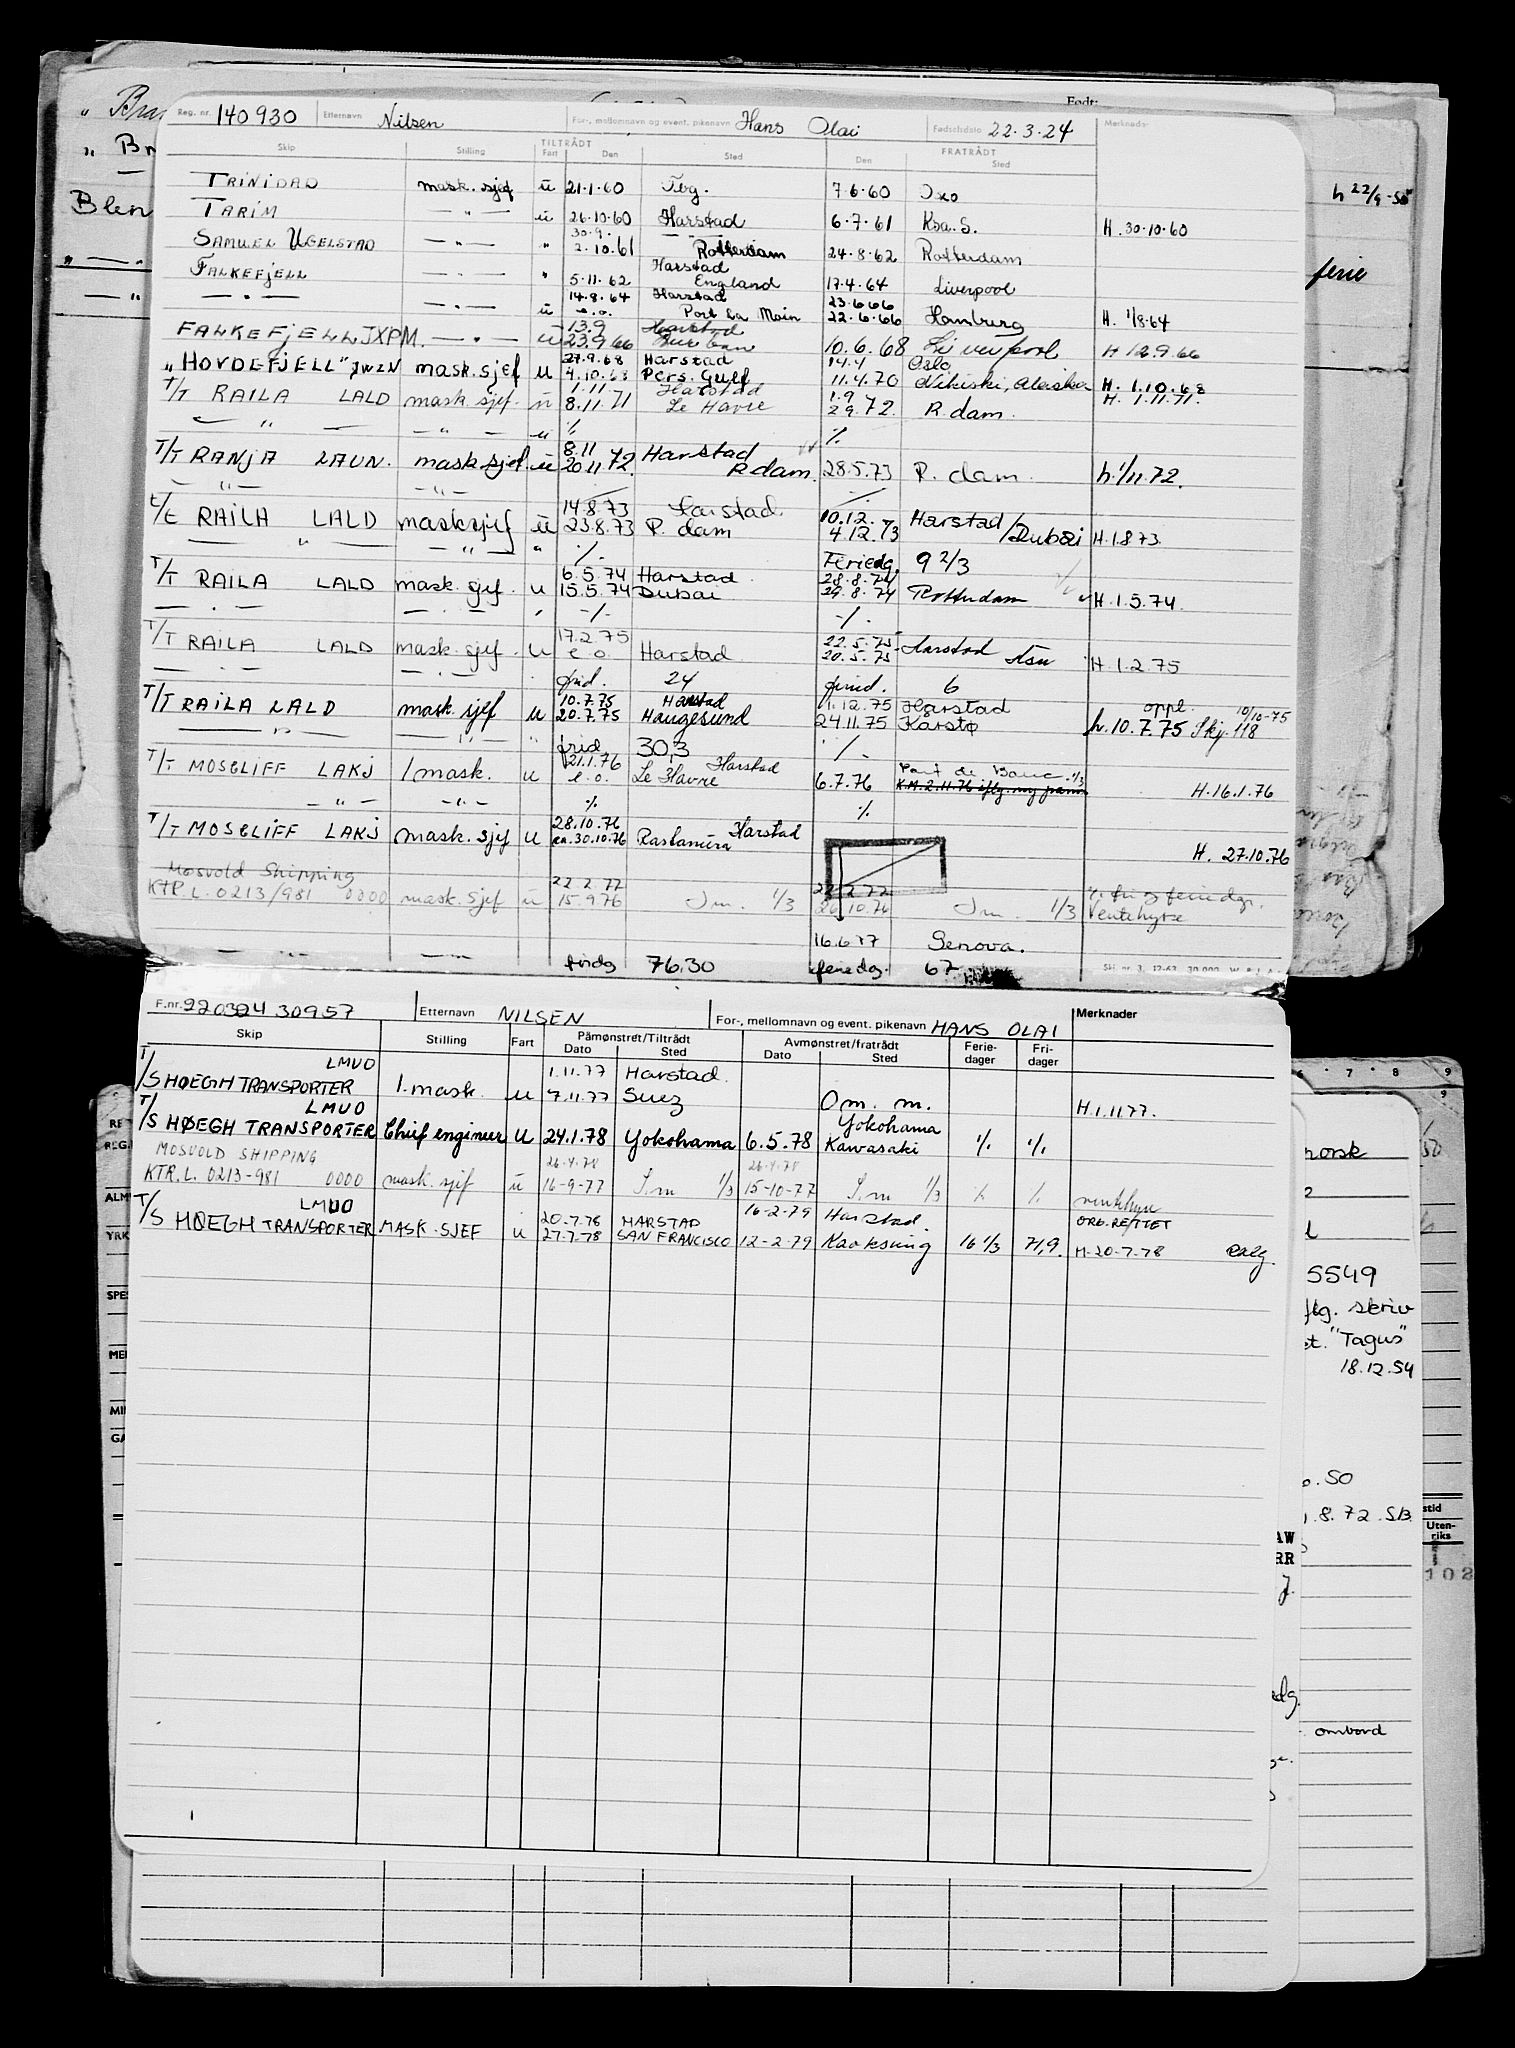 Født:
" Bra
" Br
Blen
h 22/9-55
ferie
Reg. nr. 140930 Etternavn Nilsen For-, mellomnavn og event. pikenavn Hans Olai Fødselsdato 22.3.24 Merknader
TILTRÅDT FRATRÅDT
Skip Stilling Fart Den Sted Den Sted
TRINIDAD mask.sjef u 21.1.60 Tbg. 7.6.60 Oxo
TARIM — " — u 26.10.60 Harstad 6.7.61 Ksa. S. H. 30.10.60
30.9. — " —
SAMUEL UGELSTAD — " — " 2.10.61 Rotterdam 24.8.62 Rotterdam
FALKEFJELL — " — " Harstad
5.11.62 England 17.4.64 Liverpool
14.8.64 Harstad 23.6.66
— " — — " — u e.o. Port La Main 22.6.66 Hamburg H. 1/8.64
13.9 Harstad
FALKEFJELL JXPM. — " — u 23.9.66 Durban 10.6.68 Liverpool H 12.9.66
27.9.68 Harstad 14.4 Oslo
"HOVDEFJELL" JWZN mask.sjef u 4.10.68 Pers. Gulf 11.4.70 Nikiski, Alaska H. 1.10.68
1.11 Harstad 1.9 H. 1.11.71.
T/T RAILA LALD mask.sjef. u 8.11.71 Le Havre 2.9.72 R.dam.
— " — — " — u % %
8.11 Harstad
T/T RANJA LAUN. mask.sjef. u 20.11.72. R.dam. 28.5.73 R. dam. h. 1/11.72.
— " — — " —
14.8.73 Harstad 10.12. Harstad
t/t RAILA LALD mask sjef u 23.8.73 R. dam 4.12.73 /Dubai H.1.8.73.
— " — — " — " % Feriedg. 9 2/3
6.5.74 Harstad 28.8.74
T/T RAILA LALD mask. sjef. u 15.5.74 Dubai 29.8.74 Rotterdam H.1.5.74.
— " — — " — , -/- -/-
17.2.75 22.5.75 Harstad
T/T RAILA LALD mask. sjef. u e.o. Harstad 20.5.75 H.1.2.75
— " — — " — frid. 24 frid. 6
10.7.75 Harstad 1.12.75 Harstad oppl. 10/10-75
T/T RAILA LALD mask.sjef u 20.7.75 Haugesund 24.11.75 Kårstø h.10.7.75 Skj. 118
— " — — " — " frid 30,3 -/-
21.1.76 Harstad Port de Bouc. 1/3
T/T MOSCLIFF LAKJ 1 mask. u e.o. Le Havre 6.7.76 H.16.1.76
— " — — " — % %
28.10.76 Harstad
T/T MOSCLIFF LAKJ mask.sjef u ca.30.10.76 Rastanura H. 27.10.76
Mosvold Shipping 22.2.77 22.2.77
KTR.L. 0213/981 0000 mask.sjef u 15.9.76 Im. 1/3 26.10.76 Im. 1/3 Ventehyre
16.6.77 Genova.
— " — — " — fridg 76.30 feriedg. 67
F.nr. 220324 30957 Etternavn NILSEN For-, mellomnavn og event. pikenavn HANS OLAI Merknader
Skip Stilling Fart Påmønstret/Tiltrådt Avmønstret/fratrådt Ferie- Fri-
Dato Sted Dato Sted dager dager
LMUO 1.11.77 Harstad.
T/S HØEGH TRANSPORTER 1. mask. u 7.11.77 Suez Om. m. H.1.11.77.
LMUO Yokohama
T/S HØEGH TRANSPORTER Chief engineer u 24.1.78 Yokohama 6.5.78 Kawasaki % %
MOSVOLD SHIPPING 26.4.78 26.4.78
KTR.L. 0213-981 0000 mask.sjef u 16-9-77 I.m 1/3 15-10-77 I.m 1/3 % % ventehyre
LMUO 20.7.78 HARSTAD 16-2-79 Harstad. ORG. RETTET
T/S HØEGH TRANSPORTER MASK.SJEF u 27.7.78 SAN FRANCISCO 12-2-79 Kaoksiung 16 1/3 71,9. H-20-7-78
6 7 8 9
9
norsk
5549
flg. skriv
et. "Tagus"
18.12.54
.50
.8.72 SB.
stid
Uten-
riks
102
AW
RR
edg.
ombord
RE
REG.
ALM
YRK
SPES
ME
MI
GA